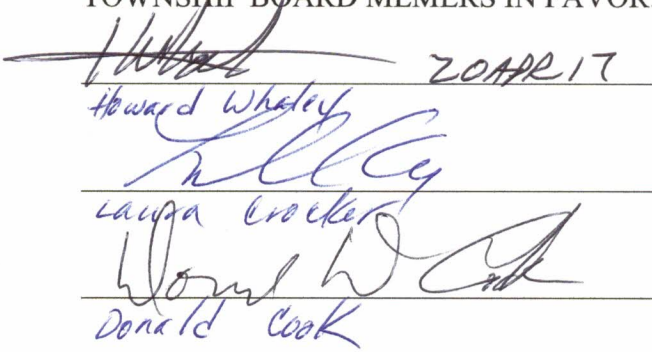 TOWNSHIP BOARD MEMERS IN FAVOR:
20 APR 17
Howard Whaley
Laura Crocker
Donald W Cook
Donald Cook